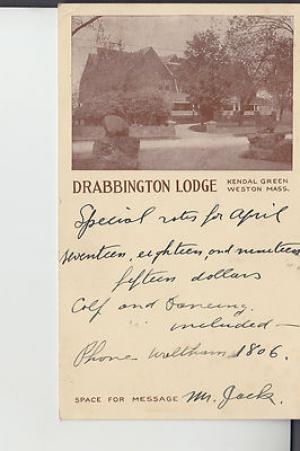 DRABBINGTON LODGE
KENDAL GREEN
WESTON MASS.
Special rates for April
seventeen, eighteen, and nineteen
fifteen dollars
Golf and Dancing
included —
Phone Waltham 1806.
SPACE FOR MESSAGE Mr. Jack.